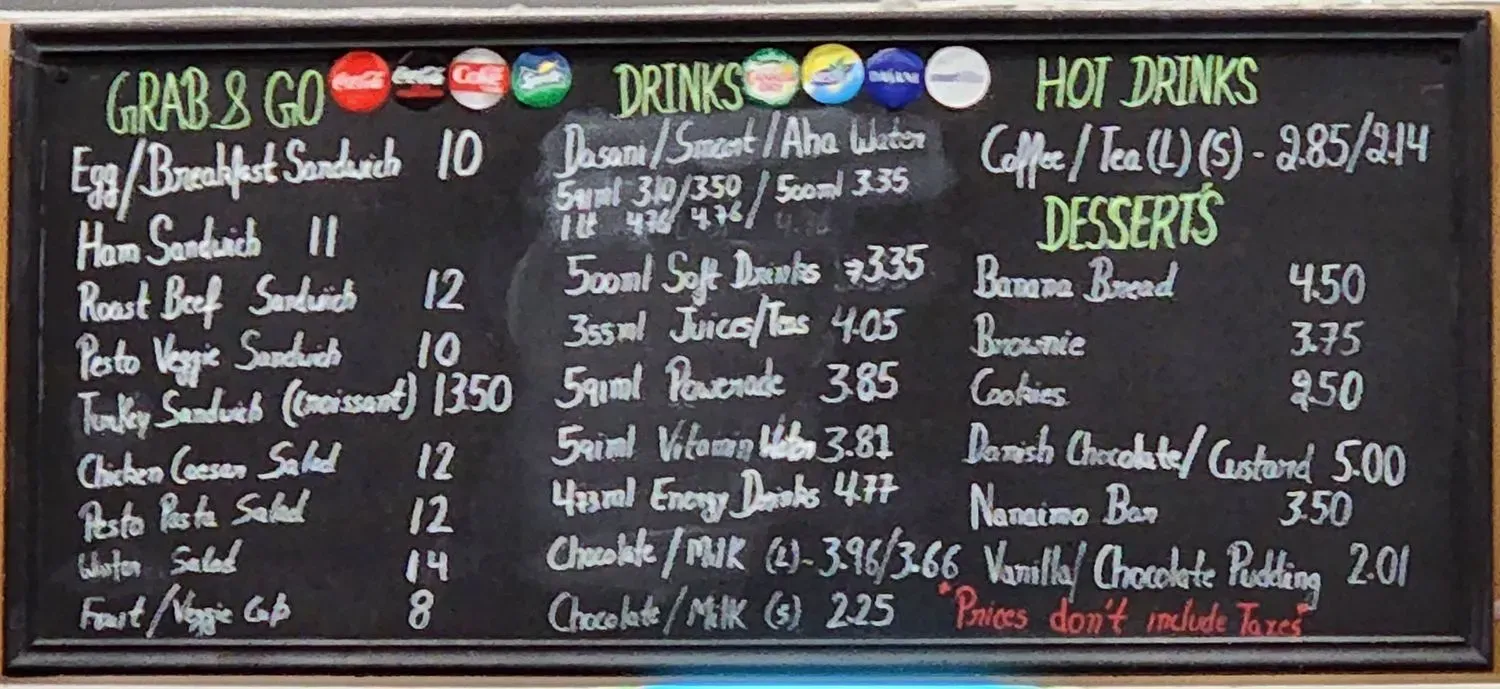 GRAB & GO
Egg/Breakfast Sandwich 10
Ham Sandwich 11
Roast Beef Sandwich 12
Pesto Veggie Sandwich 10
Turkey Sandwich (Croissant) 13.50
Chicken Caesar Salad 12
Pesto Pasta Salad 12
Winter Salad 14
Fruit/Veggie Cup 8
Coca-Cola
Coca-Cola
Coke
Sprite
DRINKS
DASANI
Dasani/Smart/Aha Water
591ml 3.10/3.50 / 500ml 3.35
1 Lt 4.76/ 4.76/
500ml Soft Drinks → 3.35
355ml Juices/Teas 4.05
591ml Powerade 3.85
591ml Vitamin Water 3.81
473ml Energy Drinks 4.77
Chocolate/Milk (L)- 3.96/3.66
Chocolate/Milk (s) 2.25
HOT DRINKS
Coffee/Tea (L) (S) - 2.85/2.14
DESSERTS
Banana Bread 4.50
Brownie 3.75
Cookies 2.50
Danish Chocolate/Custard 5.00
Nanaimo Bar 3.50
Vanilla/Chocolate Pudding 2.01
"Prices don't include Taxes"